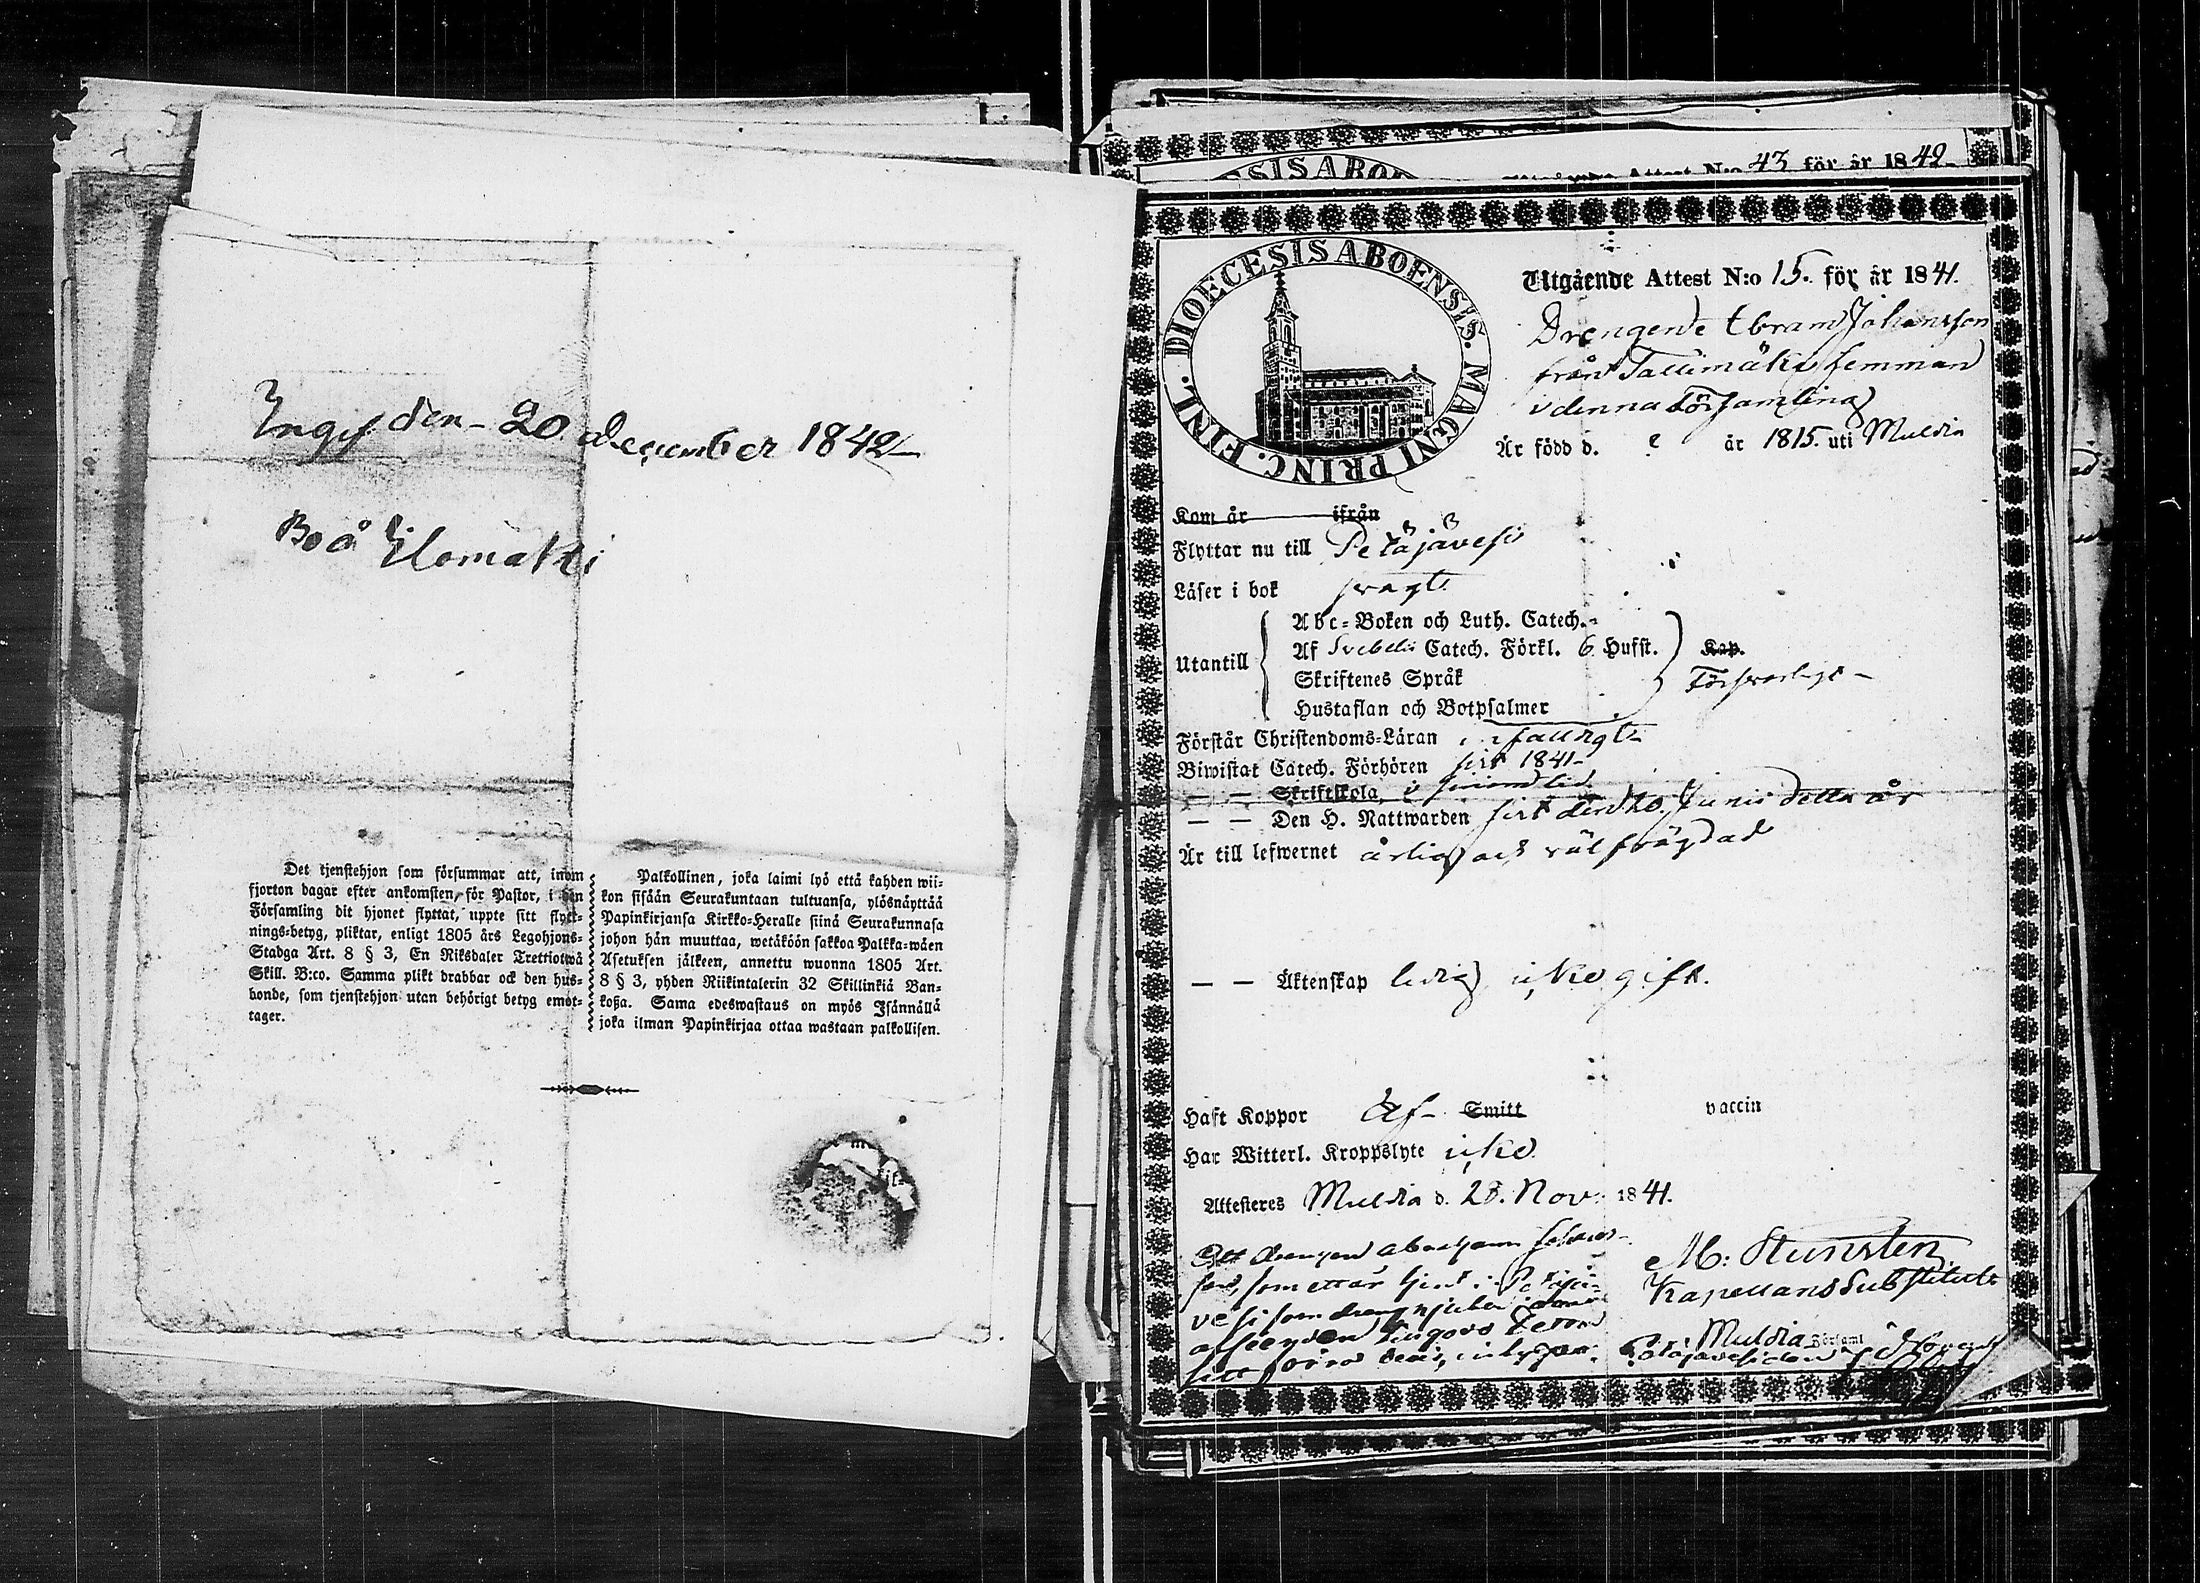 Ingif den 20 december 1842
Bo å Ylomäki
Det tjenstehjon som försummar att, inom
fjorton dagar efter ankomsten, för Pastor, i den
Församling dit hjonet flyttat, uppte sitt flytt-
nings-betyg, pliktar, enligt 1805 års Legohjons-
Stadga Art. 8 § 3, En Riksdaler Trettiotwå
Skill. B:co. Samma plikt drabbar ock den hus-
bonde, som tjenstehjon utan behörigt betyg emot-
tager.
Palkollinen, joka laimi lyö että kahden wii-
kon sisään Seurakuntaan tultuansa, ylösnäyttää
Papinkirjansa Kirkko-Heralle siinä Seurakunnasa
johon hän muuttaa, wetäköön sakkoa Palkka-wäen
Asetuksen jälkeen, annettu wuonna 1805 Art.
8 § 3, yhden Riikintalerin 32 Skillinkiä Ban-
koßa. Sama edeswastaus on myös Isännällä
joka ilman Papinkirjaa ottaa wastaan palkollisen.
Attest N:o 43 för år 1842
DIOECESIS ABOENSIS. MAGNI PRINC. FINL.
Utgående Attest N:o 15. för år 1841.
Drengen Abram Johansson
från Tallimäki hemman
i denna Församling
Är född d. år 1815. uti Muldia
Kom år ifrån
Flyttar nu till Petäjävesi
Läser i bok svagt
Utantill
Abc-Boken och Luth. Catech.
Af Svebelii Catech. Förkl. 6 Hufst. Kap.
Skriftenes Språk Försvarligt
Hustaflan och Botpsalmer
Förstår Christendoms-Läran enfalligt
Biwistat Catech. Förhören sist 1841
— — Skriftskola
— — Den H. Nattwarden sist den 20. Junii detta år
Är till lefwernet ärlig och välfrägdad
— — Äktenskap ledig, icke gift.
Haft Koppor Af Smitt vaccin
Har Witterl. Kroppslyte icke
Attesteres Muldia d. 28. Nov. 1841.
M: Stunsten
Kapellans Substitut
Muldia Församl
Att drengen Abraham Johans-
son, som ett år tjent i Petäjä-
vesi som dreng